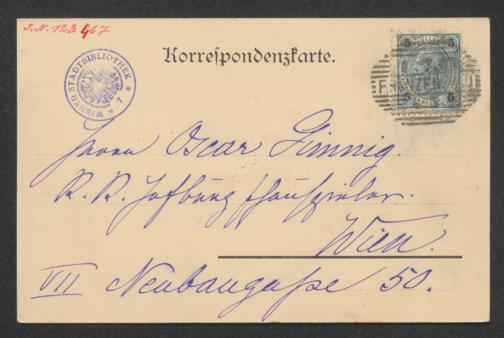 J.N. 123.467
WIENER STADTBIBLIOTHEK
Korrespondenzkarte.
5 5
5 5
Herrn Oscar Gimnig.
K. K. Hofburg Schauspieler.
Wien.
VII Neubaugaße 50.